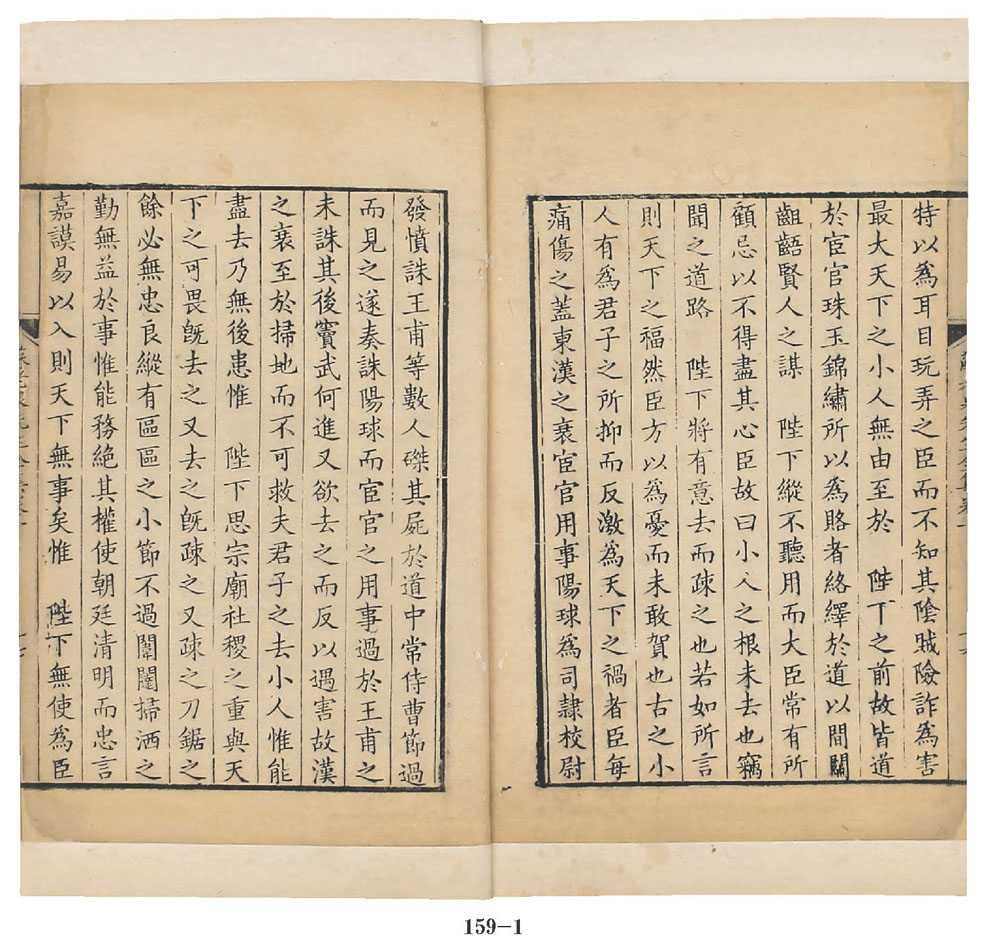 特以爲耳目玩弄之臣而不知其陰賊險詐爲害
最大天下之小人無由至於　陛下之前故皆道
於宦官珠玉錦繡所以爲賂者絡繹於道以間關
齟齬賢人之謀　陛下縱不聽用而大臣常有所
顧忌以不得盡其心臣故曰小人之根未去也竊
聞之道路　陛下將有意去而疎之也若如所言
則天下之福然臣方以爲憂而未敢賀也古之小
人有爲君子之所抑而反激爲天下之禍者臣每
痛傷之蓋東漢之衰宦官用事陽球爲司隸校尉
發憤誅王甫等數人磔其屍於道中常侍曹節過
而見之遂奏誅陽球而宦官之用事過於王甫之
未誅其後竇武何進又欲去之而反以遇害故漢
之衰至於掃地而不可救夫君子之去小人惟能
盡去乃無後患惟　陛下思宗廟社稷之重與天
下之可畏旣去之又去之旣疎之又疎之刀鋸之
餘必無忠良縱有區區之小節不過闈闥掃洒之
勤無益於事惟能務絕其權使朝廷清明而忠言
嘉謨易以入則天下無事矣惟　陛下無使爲臣
159-1